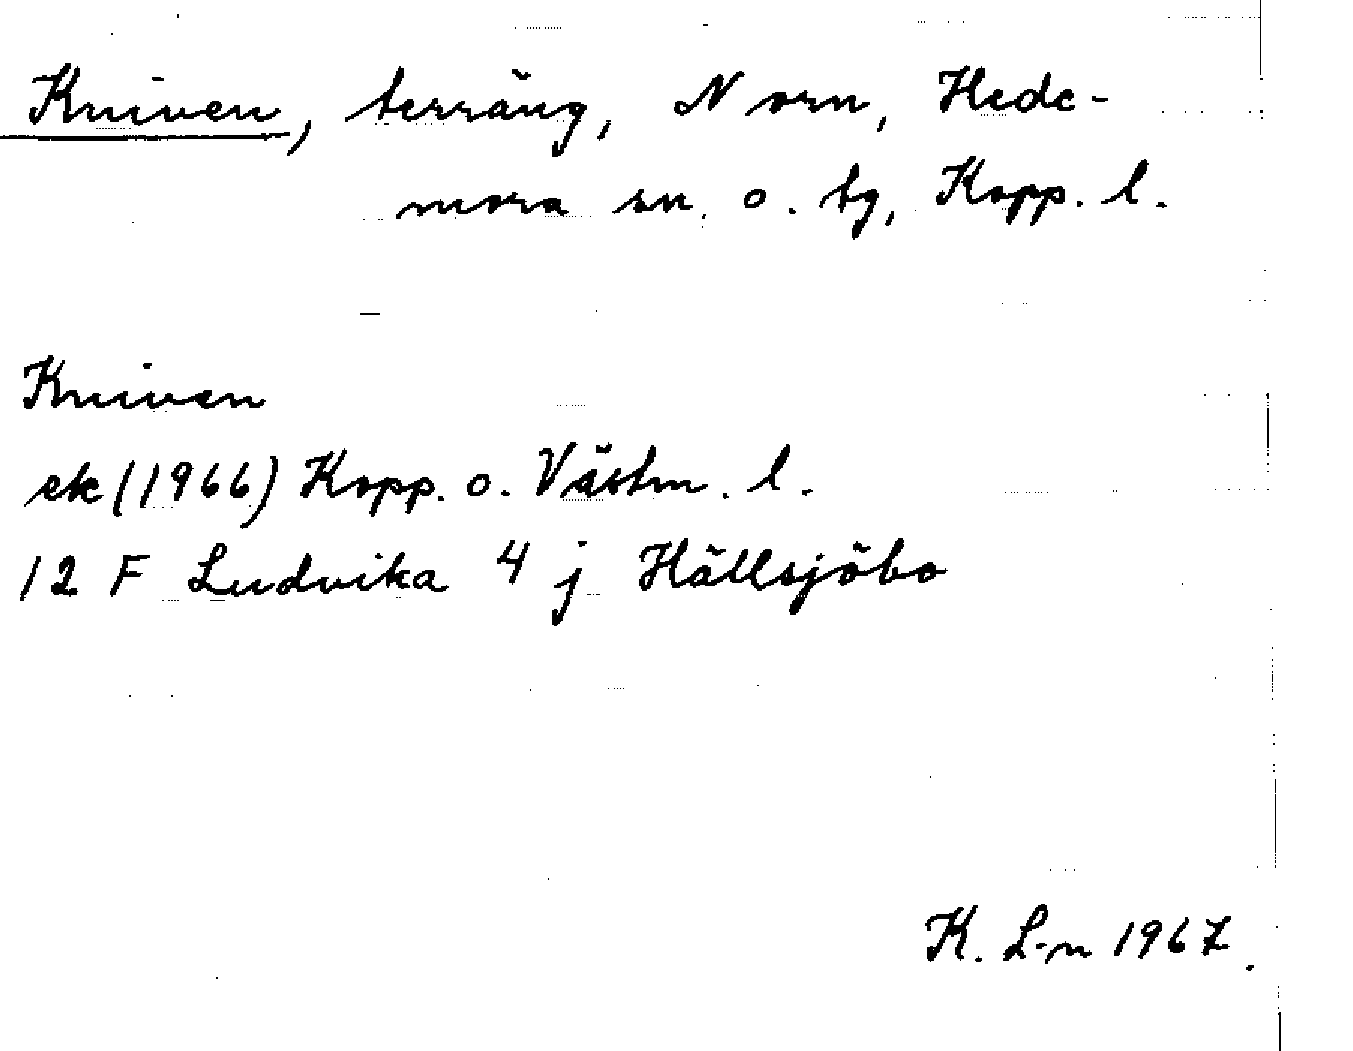 Kniven, terräng, Norn, Hede-
mora sn. o. tg, Kopp. l.
Kniven
ek (1966) Kopp. o. Västm. l.
12 F Ludvika 4 j Hällsjöbo
K. L-n 1967.